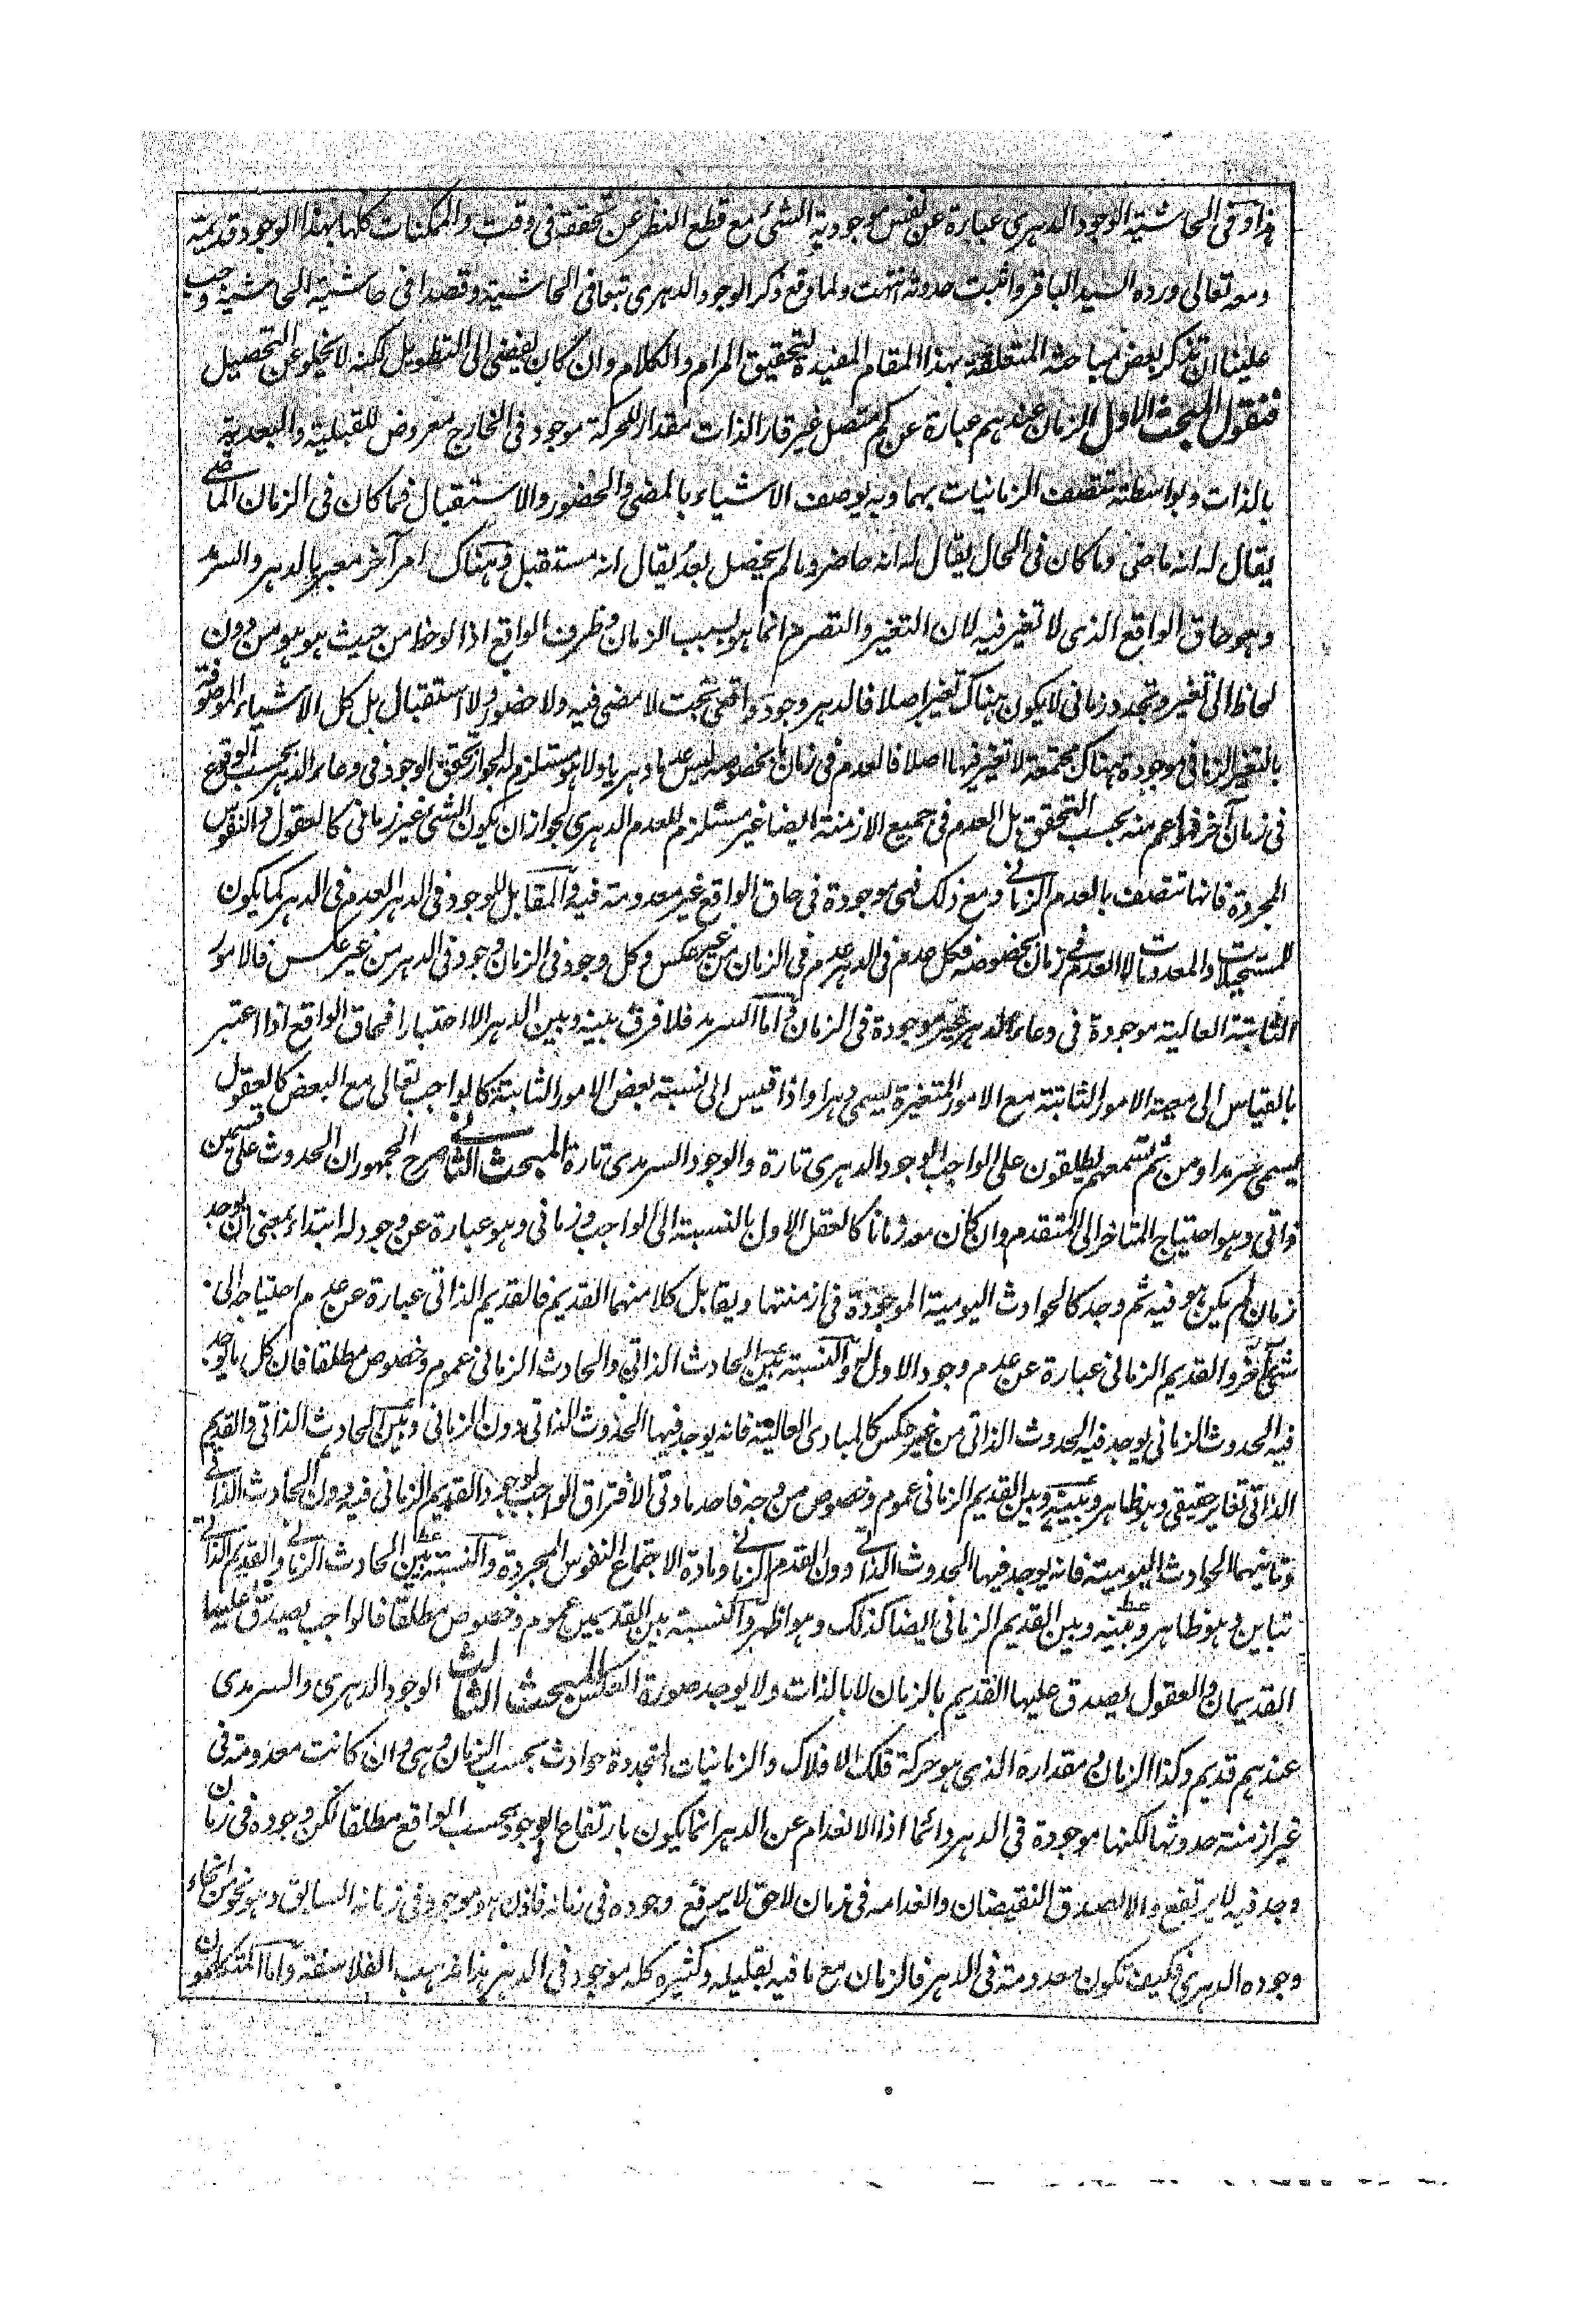 هذا وفى الحاشية الوجود الدهرى عبارة عن نفس موجودية الشئ مع قطع النظر عن تحققه فى وقت والممكنات كلها بهذا الوجود قديمة
ومعه تعالى ورده السيد الباقر واثبت حدوثه انتهت ولما وقع ذكر الوجود الدهرى تبعا فى الحاشية وقصدا فى حاشية الحاشية وجب
علينا ان نذكر بعض مباحثه المتعلقة بهذا المقام المفيدة لتحقيق المرام والكلام وان كان يفضى الى التطويل لكنه لا يخلو عن التحصيل
فنقول المبحث الاول الزمان عندهم عبارة عن كم متصل غير قار الذات مقدار للحركة موجود فى الخارج معروض للقبلية والبعدية
بالذات وبواسطته تتصف الزمانيات بهما وبه يوصف الاشياء بالمضى والحضور والاستقبال فما كان فى الزمان الماضى
يقال له انه ماضى وما كان فى الحال يقال له انه حاضر وما لم يحصل بعد يقال انه مستقبل وهناك امر آخر معبر بالدهر والسرمد
وهو حاق الواقع الذى لا تغير فيه لان التغير والتصرم انما هو بسبب الزمان وظرف الواقع اذا لوحظ من حيث هو هو من دون
لحاظ الى تغير وتجدد زمانى لا يكون هناك تغير اصلا فالدهر وجود واقعى بحت لا مضى فيه ولا حضور ولا استقبال بل كل الاشياء الموصوفة
بالتغير الزمانى موجودة هناك مجتمعة لا تغير فيها اصلا فالعدم فى زمان بخصوصه ليس عدما دهريا ولا هو مستلزم له لجواز تحقق الوجود فى وعاء الدهر بحسب الوقوع
فى زمان آخر فهو اعم منه بحسب التحقق بل العدم فى جميع الازمنة ايضا غير مستلزم للعدم الدهرى لجواز ان يكون الشئ غير زمانى كالعقول والنفوس
المجردة فانها تتصف بالعدم الزمانى ومع ذلك فهى موجودة فى حاق الواقع غير معدومة فيه والمقابل للوجود فى الدهر العدم فى الدهر كما يكون
للمستحيلات والمعدومات لا العدم فى زمان بخصوصه فكل عدم فى الدهر عدم فى الزمان من غير عكس وكل وجود فى الزمان وجود فى الدهر من غير عكس فالامور
الثابتة العالية موجودة فى وعاء الدهر غير موجودة فى الزمان واما السرمد فلا فرق بينه وبين الدهر الا اعتبارا فحاق الواقع اذا اعتبر
بالقياس الى معية الامور الثابتة مع الامور المتغيرة يسمى دهرا واذا قيس الى نسبة بعض الامور الثابتة كالواجب تعالى مع البعض كالعقول
يسمى سرمدا ومن ثم تسمعهم يطلقون على الواجب الوجود الدهرى تارة والوجود السرمدى تارة المبحث الثانى صرح الجمهور ان الحدوث على قسمين
ذاتى وهو احتياج المتاخر الى المتقدم وان كان معه زمانا كالعقل الاول بالنسبة الى الواجب وزمانى وهو عبارة عن وجود له ابتداء بمعنى ان يوجد
زمان لم يكن هو فيه ثم وجد كالحوادث اليومية الموجودة فى ازمنتها ويقابل كلا منهما القديم فالقديم الذاتى عبارة عن عدم احتياجه الى
شئ آخر والقديم الزمانى عبارة عن عدم وجود الاول له والنسبة بين الحادث الذاتى والحادث الزمانى عموم وخصوص مطلقا فان كل ما يوجد
فيه الحدوث الزمانى يوجد فيه الحدوث الذاتى من غير عكس كالمبادى العالية فانه يوجد فيها الحدوث الذاتى دون الزمانى وبين الحادث الذاتى والقديم
الذاتى تغاير حقيقى وهو ظاهر وبينه وبين القديم الزمانى عموم وخصوص من وجه فاحد مادتى الافتراق الواجب لوجود القديم الزمانى فيه دون الحادث الذاتى
وثانيهما الحوادث اليومية فانه يوجد فيها الحدوث الذاتى دون القدم الزمانى ومادة الاجتماع النفوس المجردة والنسبة بين الحادث الزمانى والقديم الذاتى
تباين وهو ظاهر وبينه وبين القديم الزمانى ايضا كذلك وهو اظهر والنسبة بين القديمين عموم وخصوص مطلقا فالواجب يصدق عليها
القديمان والعقول يصدق عليها القديم بالزمان لا بالذات ولا يوجد صورة العكس المبحث الثالث الوجود الدهرى والسرمدى
عندهم قديم وكذا الزمان ومقداره الذى هو حركة فلك الافلاك والزمانيات المتجددة حوادث بحسب الزمان وهى وان كانت معدومة فى
غير ازمنة حدوثها لكنها موجودة فى الدهر دائما اذ الانعدام عن الدهر انما يكون بارتفاع الوجود بحسب الواقع مطلقا لكن وجوده فى زمان
وجد فيه لا يرتفع والا لصدق النقيضان وانعدامه فى زمان لاحق لا يرفع وجوده فى زمانه فاذن هو موجود فى زمانه السابق وهو نحو من انحاء
وجوده الدهرى فكيف تكون معدومة فى الدهر فالزمان مع ما فيه بقليله وكثيره كله موجود فى الدهر هذا مذهب الفلاسفة واما المتكلمون